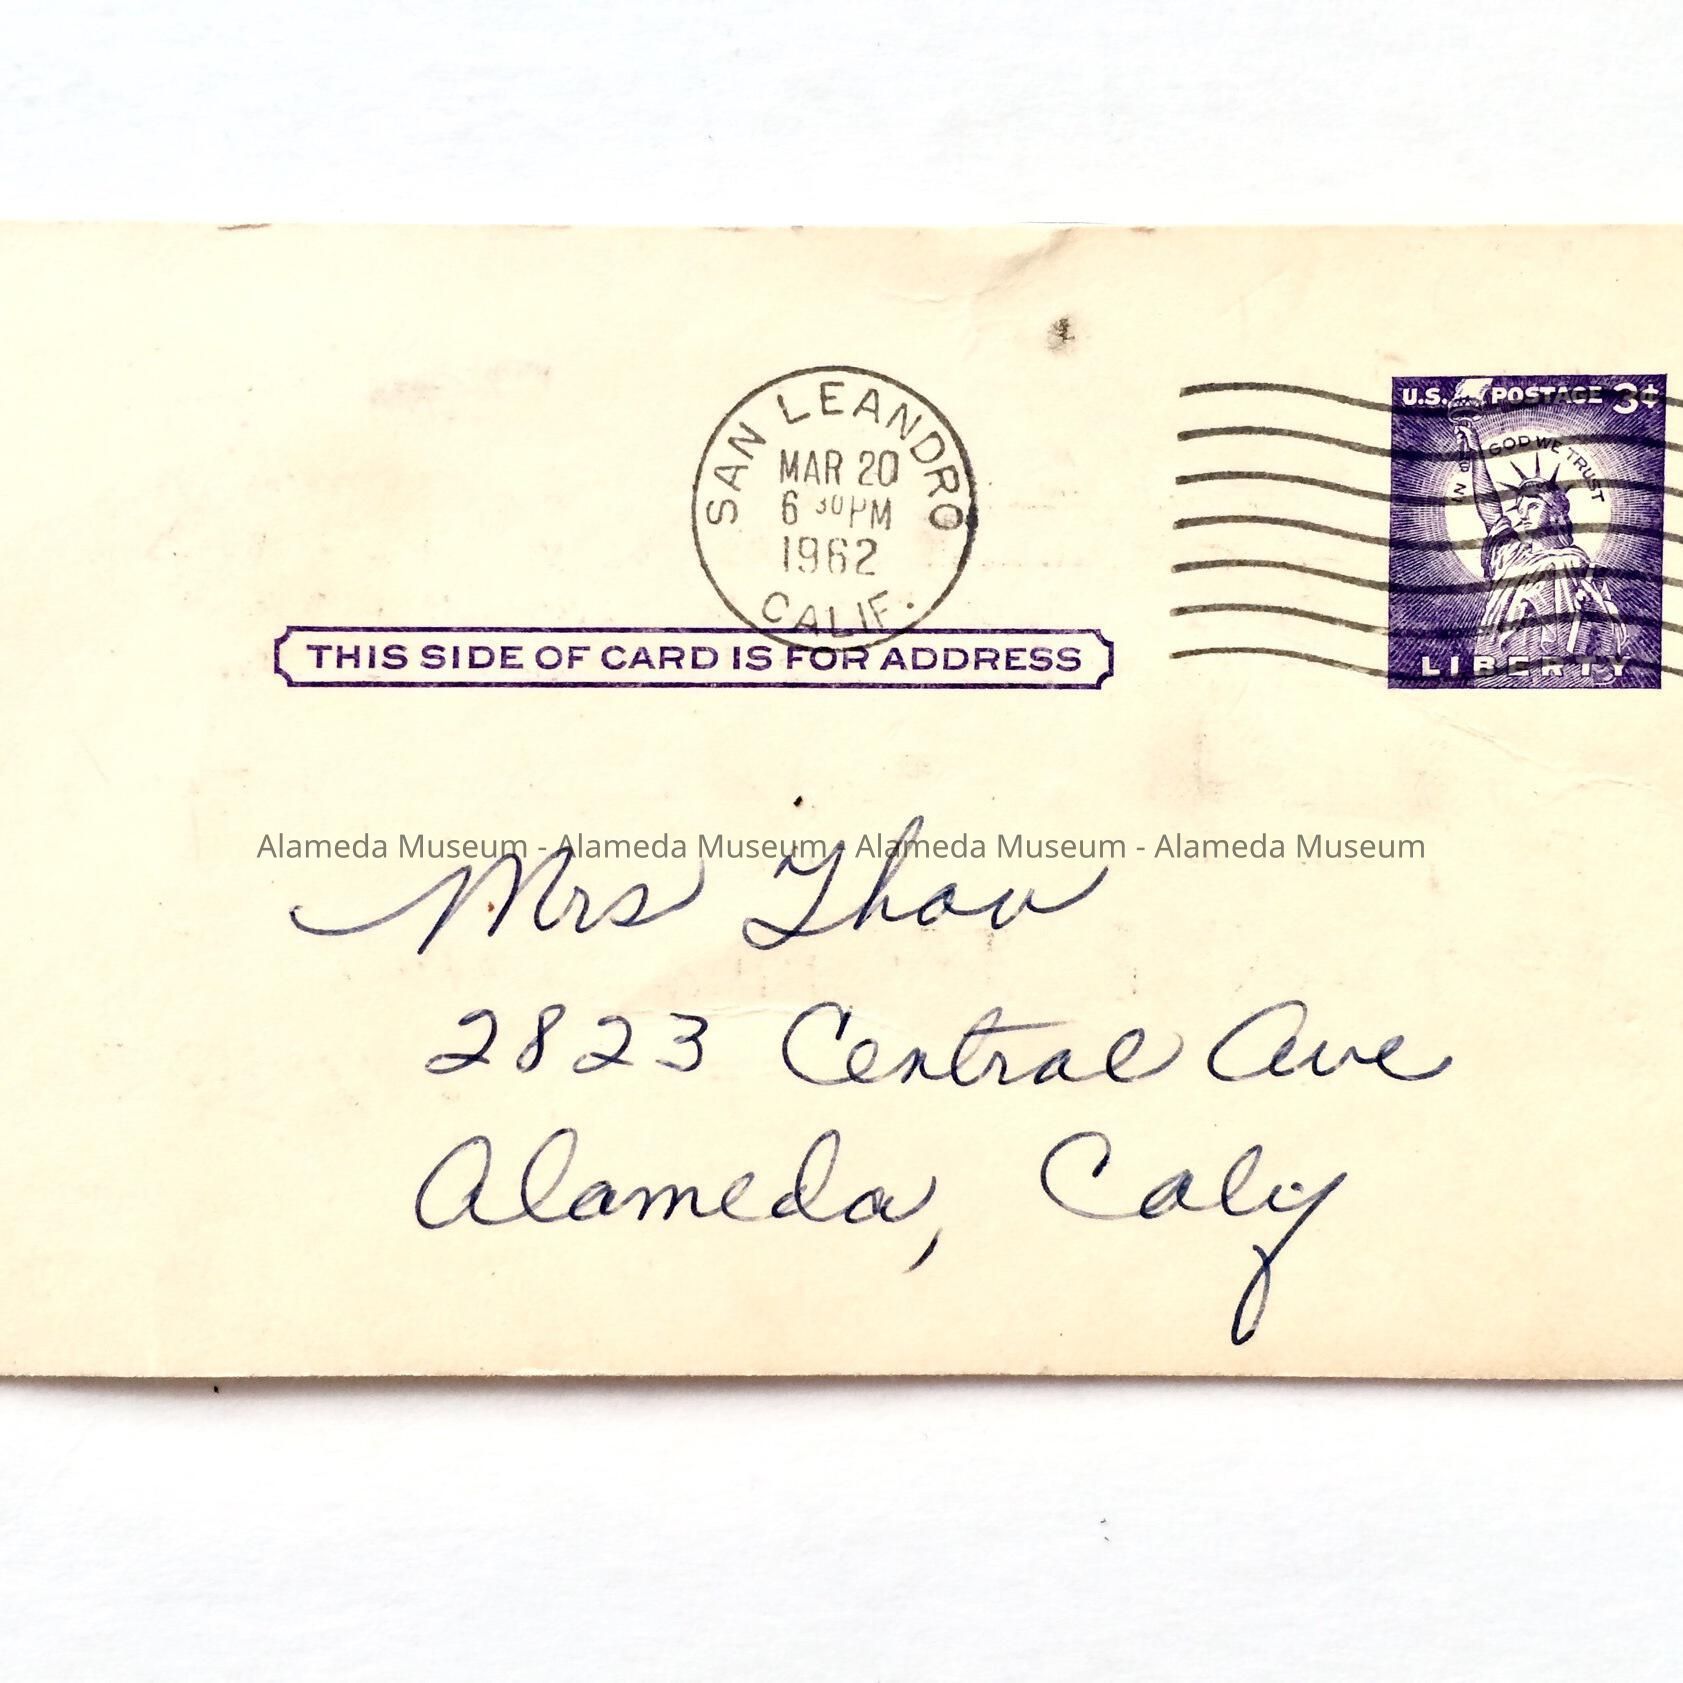 SAN LEANDRO
MAR 20
6 30 PM
1962
CALIF.
U.S. POSTAGE 3¢
IN GOD WE TRUST
LIBERTY
THIS SIDE OF CARD IS FOR ADDRESS
Alameda Museum - Alameda Museum - Alameda Museum - Alameda Museum
Mrs Thow
2823 Central Ave
Alameda, Calif